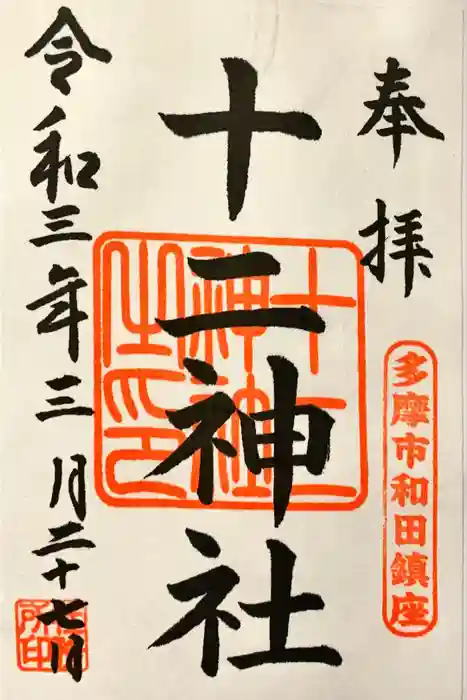 奉拝
多摩市和田鎮座
十二神社
十二
神社
之印
令和三年三月二十七日
所印